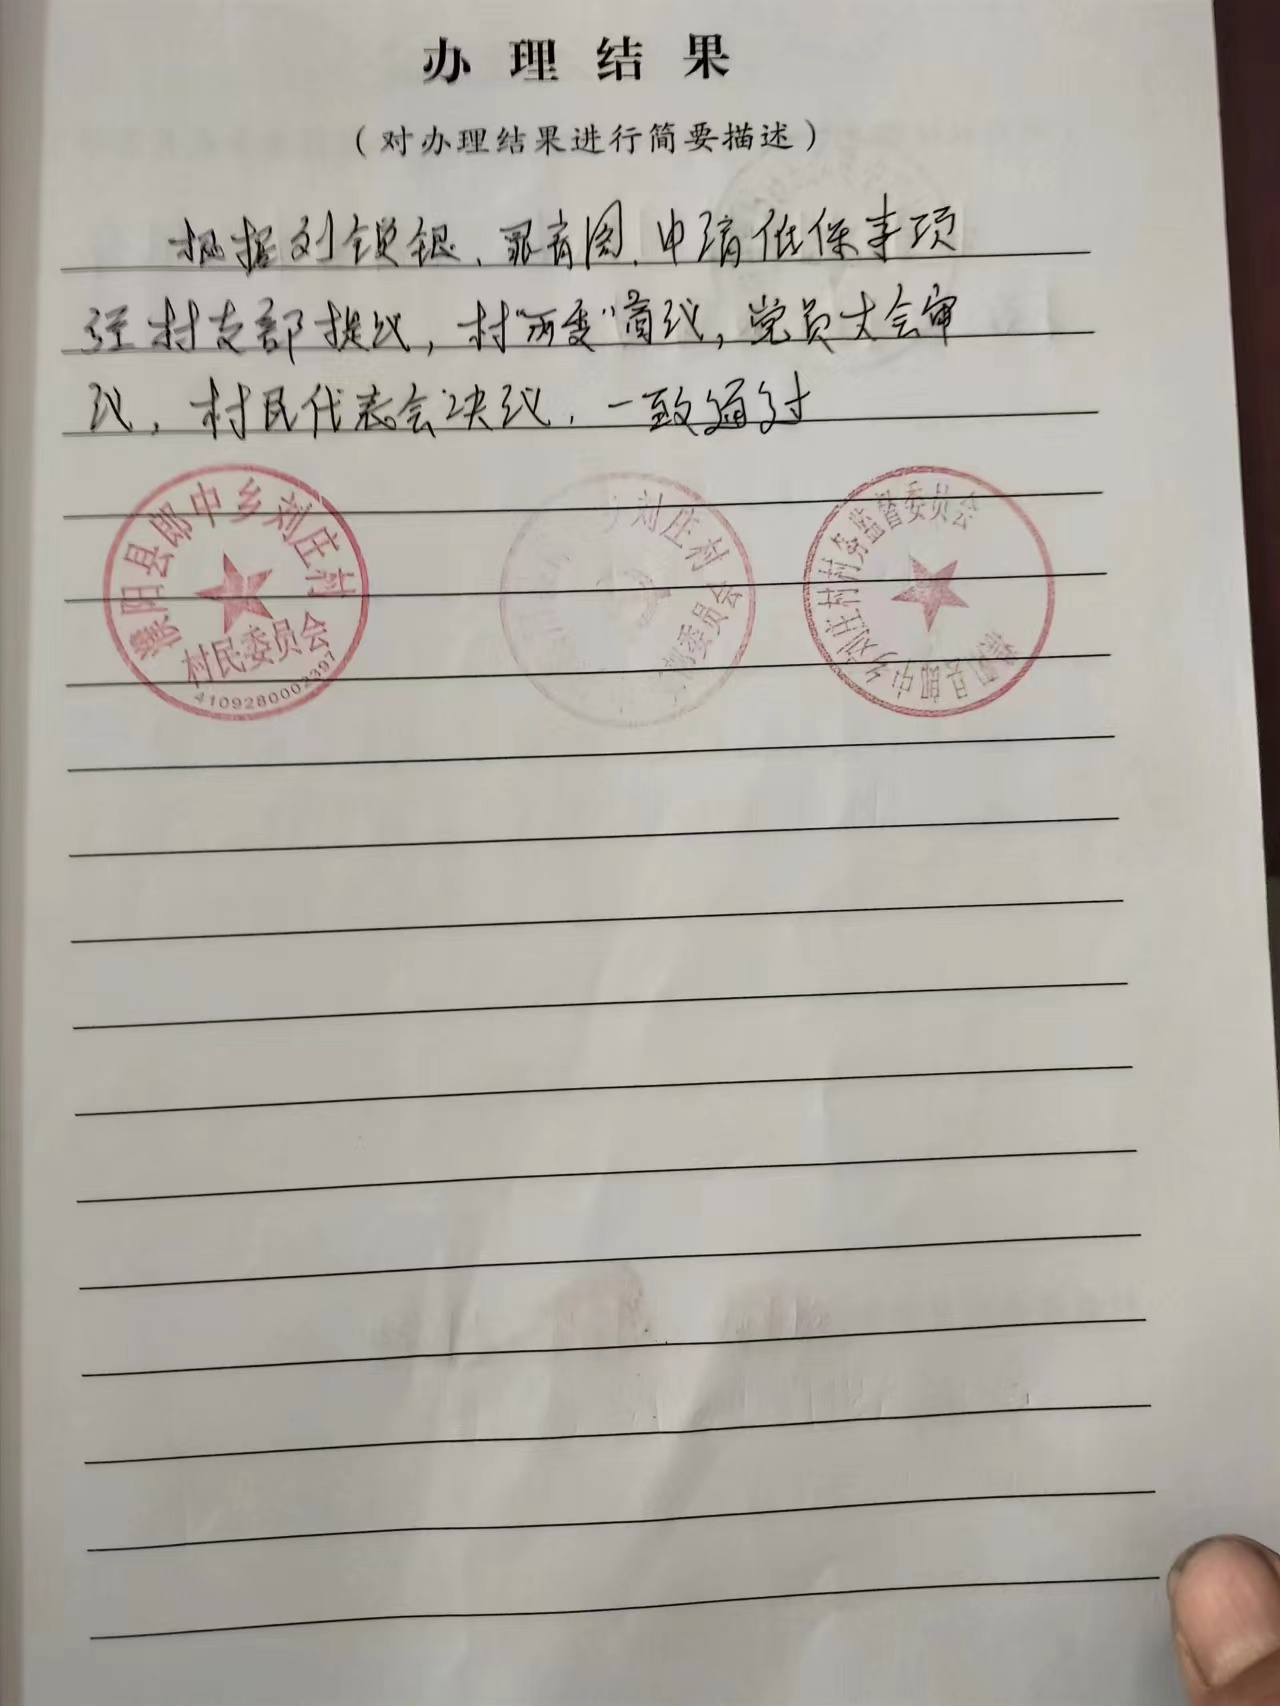 办理结果
（对办理结果进行简要描述）
根据刘锁银、申请低保事项
经村支部提议，村“两委”商议，党员大会审
议，村民代表会决议，一致通过
濮阳县郎中乡刘庄村
村民委员会
4109280002397
刘庄村
委员会
濮阳县郎中乡刘庄村村务监督委员会